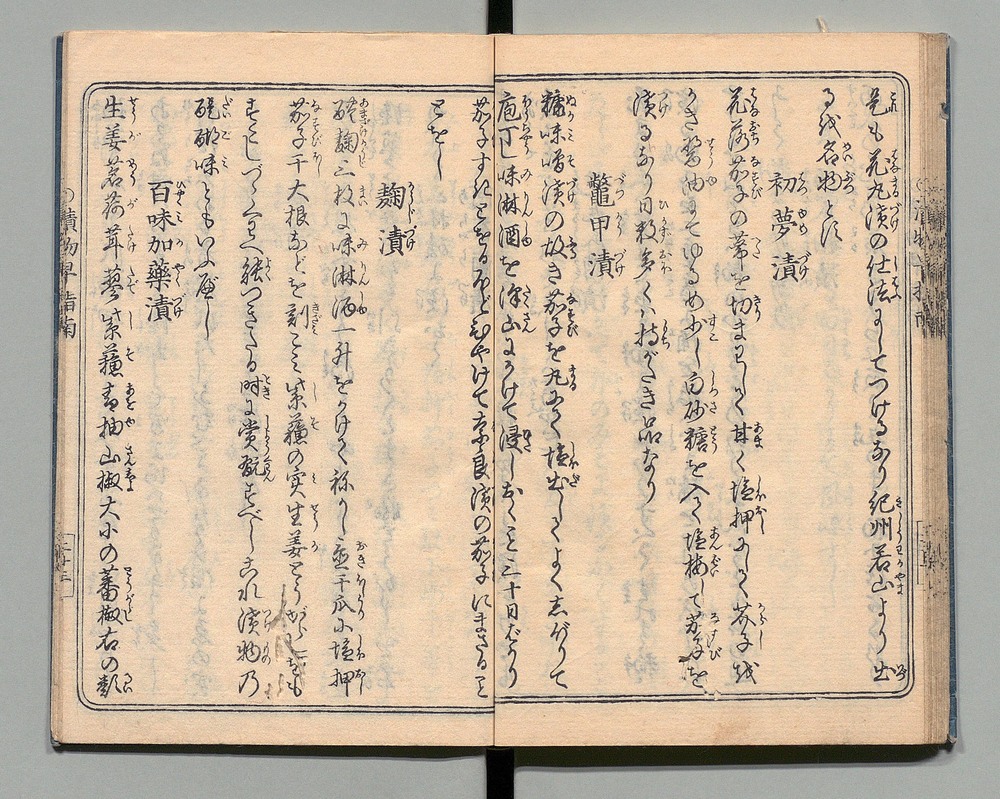 是も花丸漬の仕法にしてつけるなり紀州若山より出
る故名物とす
初夢漬
花落茄子の蔕を切まわして甘く塩押にして芥子を
かき醤油にてゆるめ少し白砂糖を入て塩梅して茄子を
漬るなり日数多くハ持がたき品なり
鼈甲漬
糠味噌漬の故き茄子を丸にて塩出してよくしぼりて
庖丁し味淋酒を沢山にかけて浸しおくこと三十日ばかり
茄子すきとをるほどにつけて奈良漬の茄子にまさること
とをし
麹漬
醴麹三枚に味淋酒一升をかけてねかし置干瓜小塩押
茄子干大根などを刻こミ紫蘇の実生姜とうがらしをも
まじへ能つきたる時に賞翫すべしこれ漬物乃
醍醐味ともいふべし
百味加藥漬
生姜茗荷茸蓼紫蘇青柚山椒大小の蕃椒右の類
漬物早指南